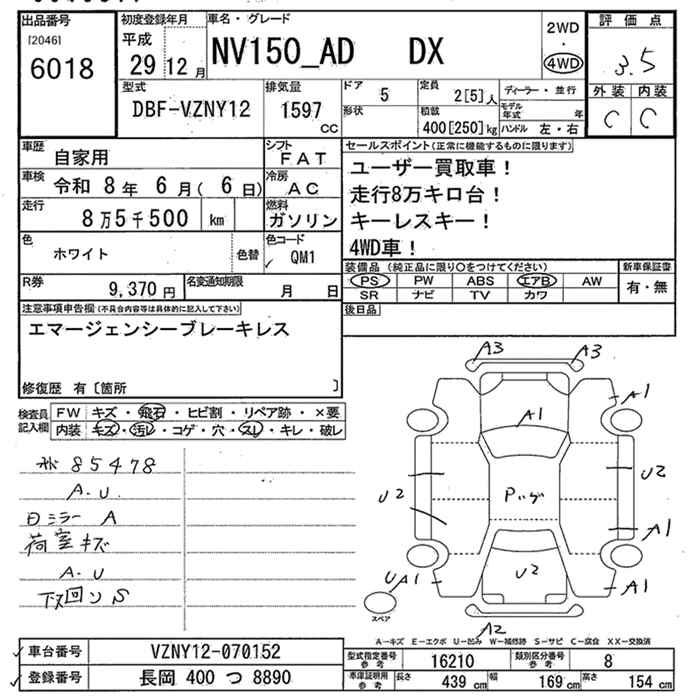 出品番号 初度登録年月 車名・グレード 評価点
[2046] 平成 2WD
6018 29 12月 NV150_AD DX 4WD 3.5
型式 排気量 ドア 5 定員 2[5]人 ディーラー・並行 外装 内装
DBF-VZNY12 1597 cc 形状 積載 400[250]kg モデル年式 年 C C
ハンドル 左・右
車歴 自家用 シフト FAT セールスポイント(正常に機能するものに限ります)
車検 令和 8年 6月(6日) 冷房 AC ユーザー買取車!
走行 8万5千500 km 燃料 ガソリン 走行8万キロ台!
キーレスキー!
色 ホワイト 色替 色コード QM1 4WD車!
装備品(純正品に限り○をつけてください) 新車保証書
R券 9,370円 名変通知期限 月 日 PS PW ABS エアB AW 有・無
SR ナビ TV カワ
注意事項申告欄(不具合内容等は具体的に記入して下さい) 後日品
エマージェンシーブレーキレス
修復歴 有〔箇所 〕
検査員記入欄 FW キズ・飛石・ヒビ割・リペア跡・×要
内装 キズ・汚レ・コゲ・穴・スレ・キレ・破レ
A3 A3
A1 A1
85478
A.U
U2 U2
ミラー A Pいがが
荷室キズ A1
A.U UA1 U2 A1
下回リS
スペア
A2
A-キズ E-エクボ U-凹み W-補修跡 S-サビ C-腐食 XX-交換済
車台番号 VZNY12-070152 型式指定番号 参考 16210 類別区分番号 参考 8
登録番号 長岡 400 つ 8890 車庫証明用 参考 長さ 439cm 幅 169cm 高さ 154cm